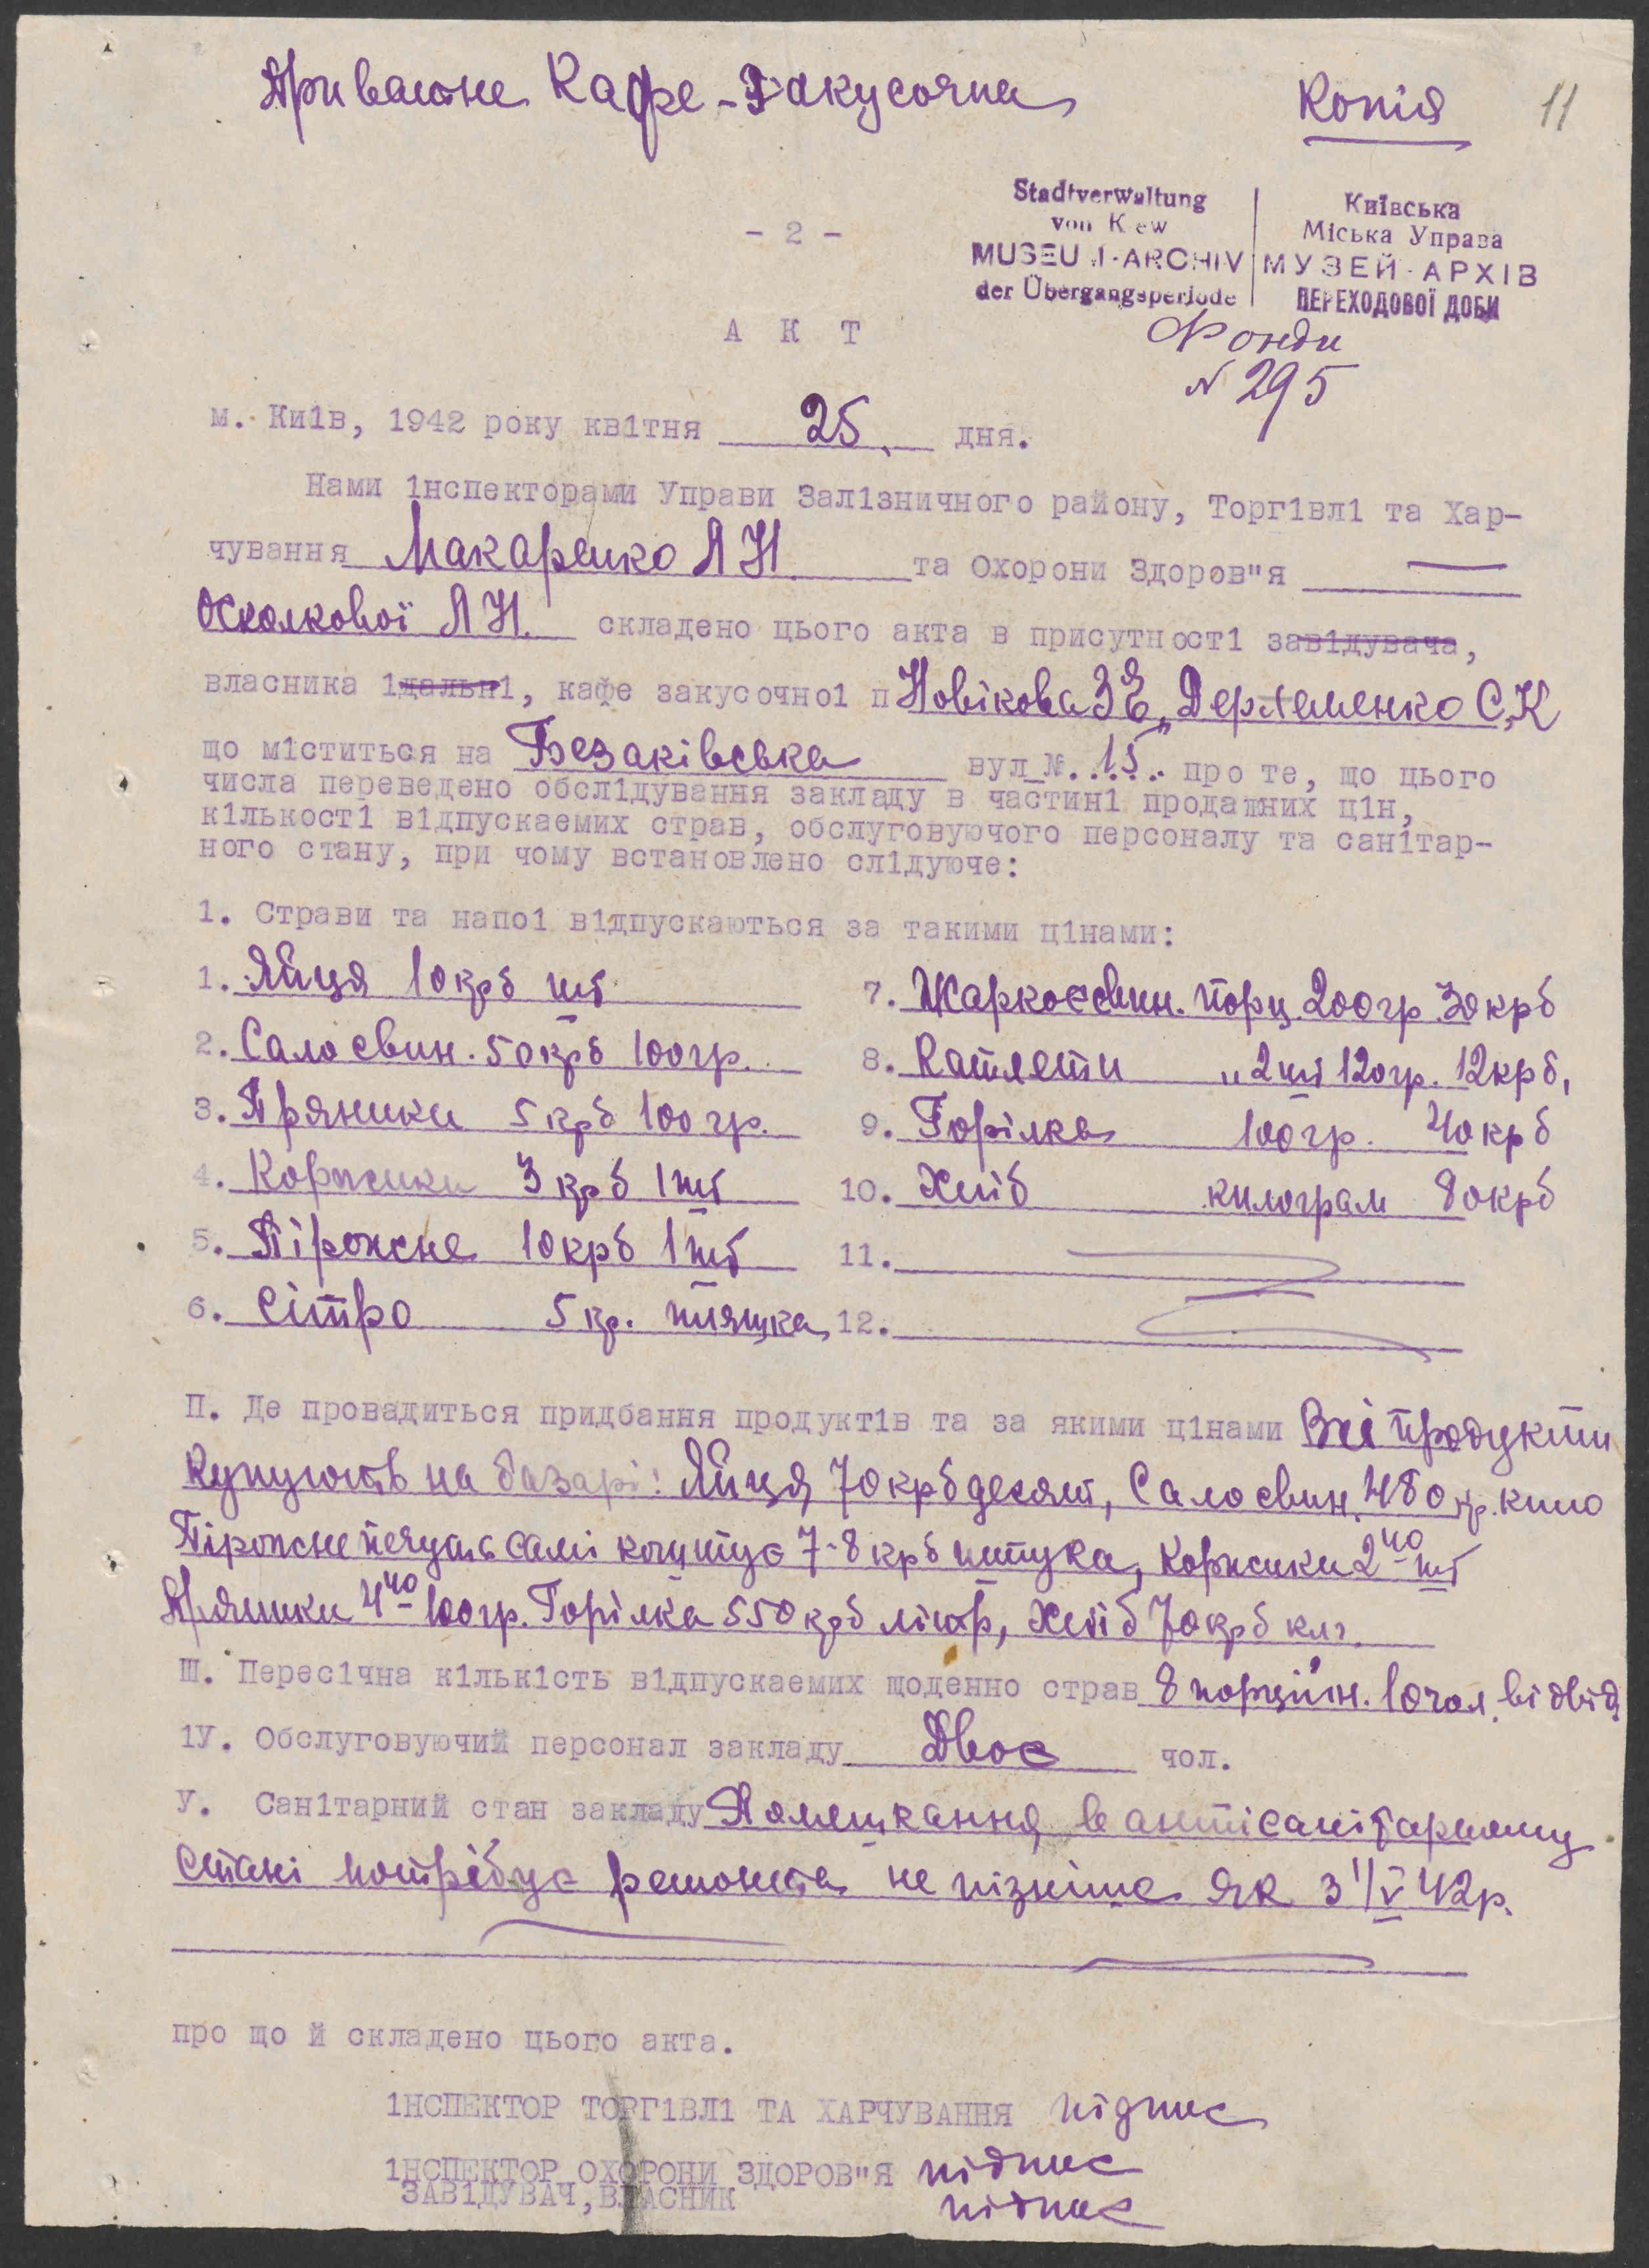 Приватне Кафе-Закусочна
Копія 11
Stadtverwaltung
von Kiew
MUSEUM-ARCHIV
der Übergangsperiode
Київська
Міська Управа
МУЗЕЙ-АРХІВ
ПЕРЕХОДОВОЇ ДОБИ
- 2 -
Фонди
N 295
А К Т
м. Киів, 1942 року квітня 25 дня.
Нами інспекторами Управи Залізничного району, Торгівлі та Хар-
чування Макаренко А Н. та Охорони Здоров"я
Осколкової А Н. складено цього акта в присутності завідувача,
власника ідальні, кафе закусочноі п Новікова З Є, Дерхеменко С,К
що міститься на Безаківська вул № 15 про те, що цього
числа переведено обслідування закладу в частині продажних цін,
кількості відпускаемих страв, обслуговуючого персоналу та санітар-
ного стану, при чому встановлено слідуюче:
1. Страви та напоі відпускаються за такими цінами:
1. Яйця 10 крб шт
2. Сало свин. 50 крб 100 гр.
3. Пряники 5 крб 100 гр.
4. Коржики 3 крб 1 шт
5. Пірожне 10 крб 1 шт
6. Сітро 5 кр. пляшка
7. Жаркое свин. порц 200 гр 30 крб
8. Катлети " 2 шт 120 гр. 12 крб,
9. Горілка 100 гр. 40 крб
10. Хліб килограм 80 крб
11.
12.
П. Де провадиться придбання продуктів та за якими цінами Всі продукти
купують на базарі: Яйця 70 крб десят, Сало свин. 480 кр. кило
Пірожне печуть самі коштує 7-8 крб штука, Коржики 2 40 шт
Пряники 4 40 100 гр. Горілка 550 крб літр, Хліб 70 крб клг.
Ш. Пересічна кількість відпускаемих щоденно страв 8 порційн. 10 чол. відвід
1У. Обслуговуючий персонал закладу Двоє чол.
У. Санітарний стан закладу Помешкання в антісанітарному
стані потрібує ремонта не пізніше як з 1/V 42 р.
про що й складено цього акта.
ІНСПЕКТОР ТОРГІВЛІ ТА ХАРЧУВАННЯ підпис
ІНСПЕКТОР ОХОРОНИ ЗДОРОВ"Я підпис
ЗАВІДУВАЧ, ВЛАСНИК підпис